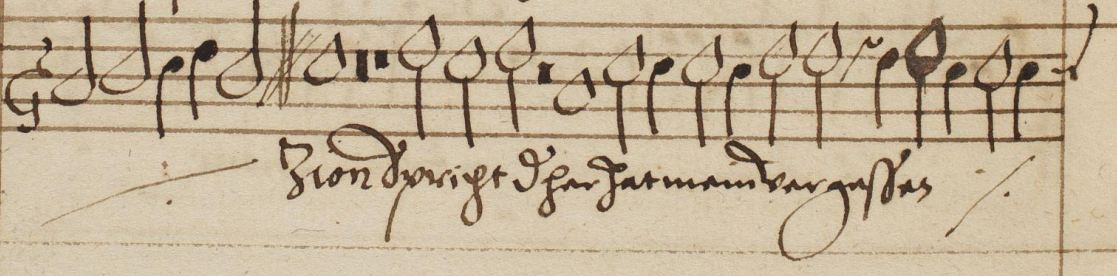 Zion Spricht d her hat mein vergessen